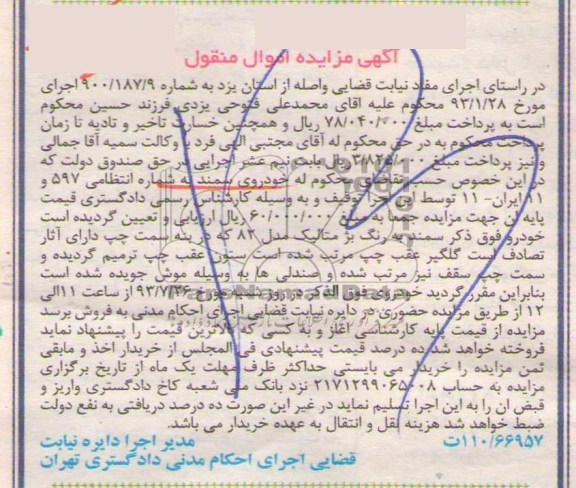 آگهی مزایده اموال منقول
در راستای اجرای مفاد نیابت قضایی واصله از استان یزد به شماره ۹۰۰/۱۸۷/۹ اجرای
مورخ ۹۳/۱/۲۸ محکوم علیه اقای محمدعلی فتوحی یزدی فرزند حسین محکوم
است به پرداخت مبلغ ۷۸/۰۴۰/۰۰۰ ریال و همچنین خسارت تاخیر و تادیه تا زمان
پرداخت محکوم به در حق محکوم له آقای مجتبی الهی فرد با وکالت سمیه آقا جمالی
و نیز پرداخت مبلغ ریال بابت نیم عشر اجرایی در حق صندوق دولت که
در این خصوص حسب تقاضای محکوم له خودروی سمند به شماره انتظامی ۵۹۷ و
۱۱ ایران- ۱۱ توسط این اجرا توقیف و به وسیله کارشناس رسمی دادگستری قیمت
پایه آن جهت مزایده جمعا به مبلغ ۶۰/۰۰۰/۰۰۰ ریال ارزیابی و تعیین گردیده است
خودرو فوق ذکر سمند به رنگ بژ متالیک مدل ۸۳ که در بدنه سمت چپ دارای آثار
تصادف است گلگیر عقب چپ مرتب شده است ستون عقب چپ ترمیم گردیده و
سمت چپ سقف نیز مرتب شده و صندلی ها به وسیله موش جویده شده است
بنابراین مقرر گردید خودروی فوق الذکر در روز شنبه مورخ ۹۳/۷/۲۶ از ساعت ۱۱ الی
۱۲ از طریق مزایده حضوری در دایره نیابت قضایی اجرای احکام مدنی به فروش برسد
مزایده از قیمت پایه کارشناسی آغاز و به کسی که بالاترین قیمت را پیشنهاد نماید
فروخته خواهد شد ده درصد قیمت پیشنهادی فی المجلس از خریدار اخذ و مابقی
ثمن مزایده را خریدار می بایستی حداکثر ظرف مهلت یک ماه از تاریخ برگزاری
مزایده به حساب ۲۱۷۱۲۹۹۰۶۵۰۰۸ نزد بانک ملی شعبه کاخ دادگستری واریز و
قبض ان را به این اجرا تسلیم نماید در غیر این صورت ده درصد دریافتی به نفع دولت
ضبط خواهد شد هزینه نقل و انتقال به عهده خریدار می باشد.
۱۱۰/۶۶۹۵۷ت مدیر اجرا دایره نیابت
قضایی اجرای احکام مدنی دادگستری تهران